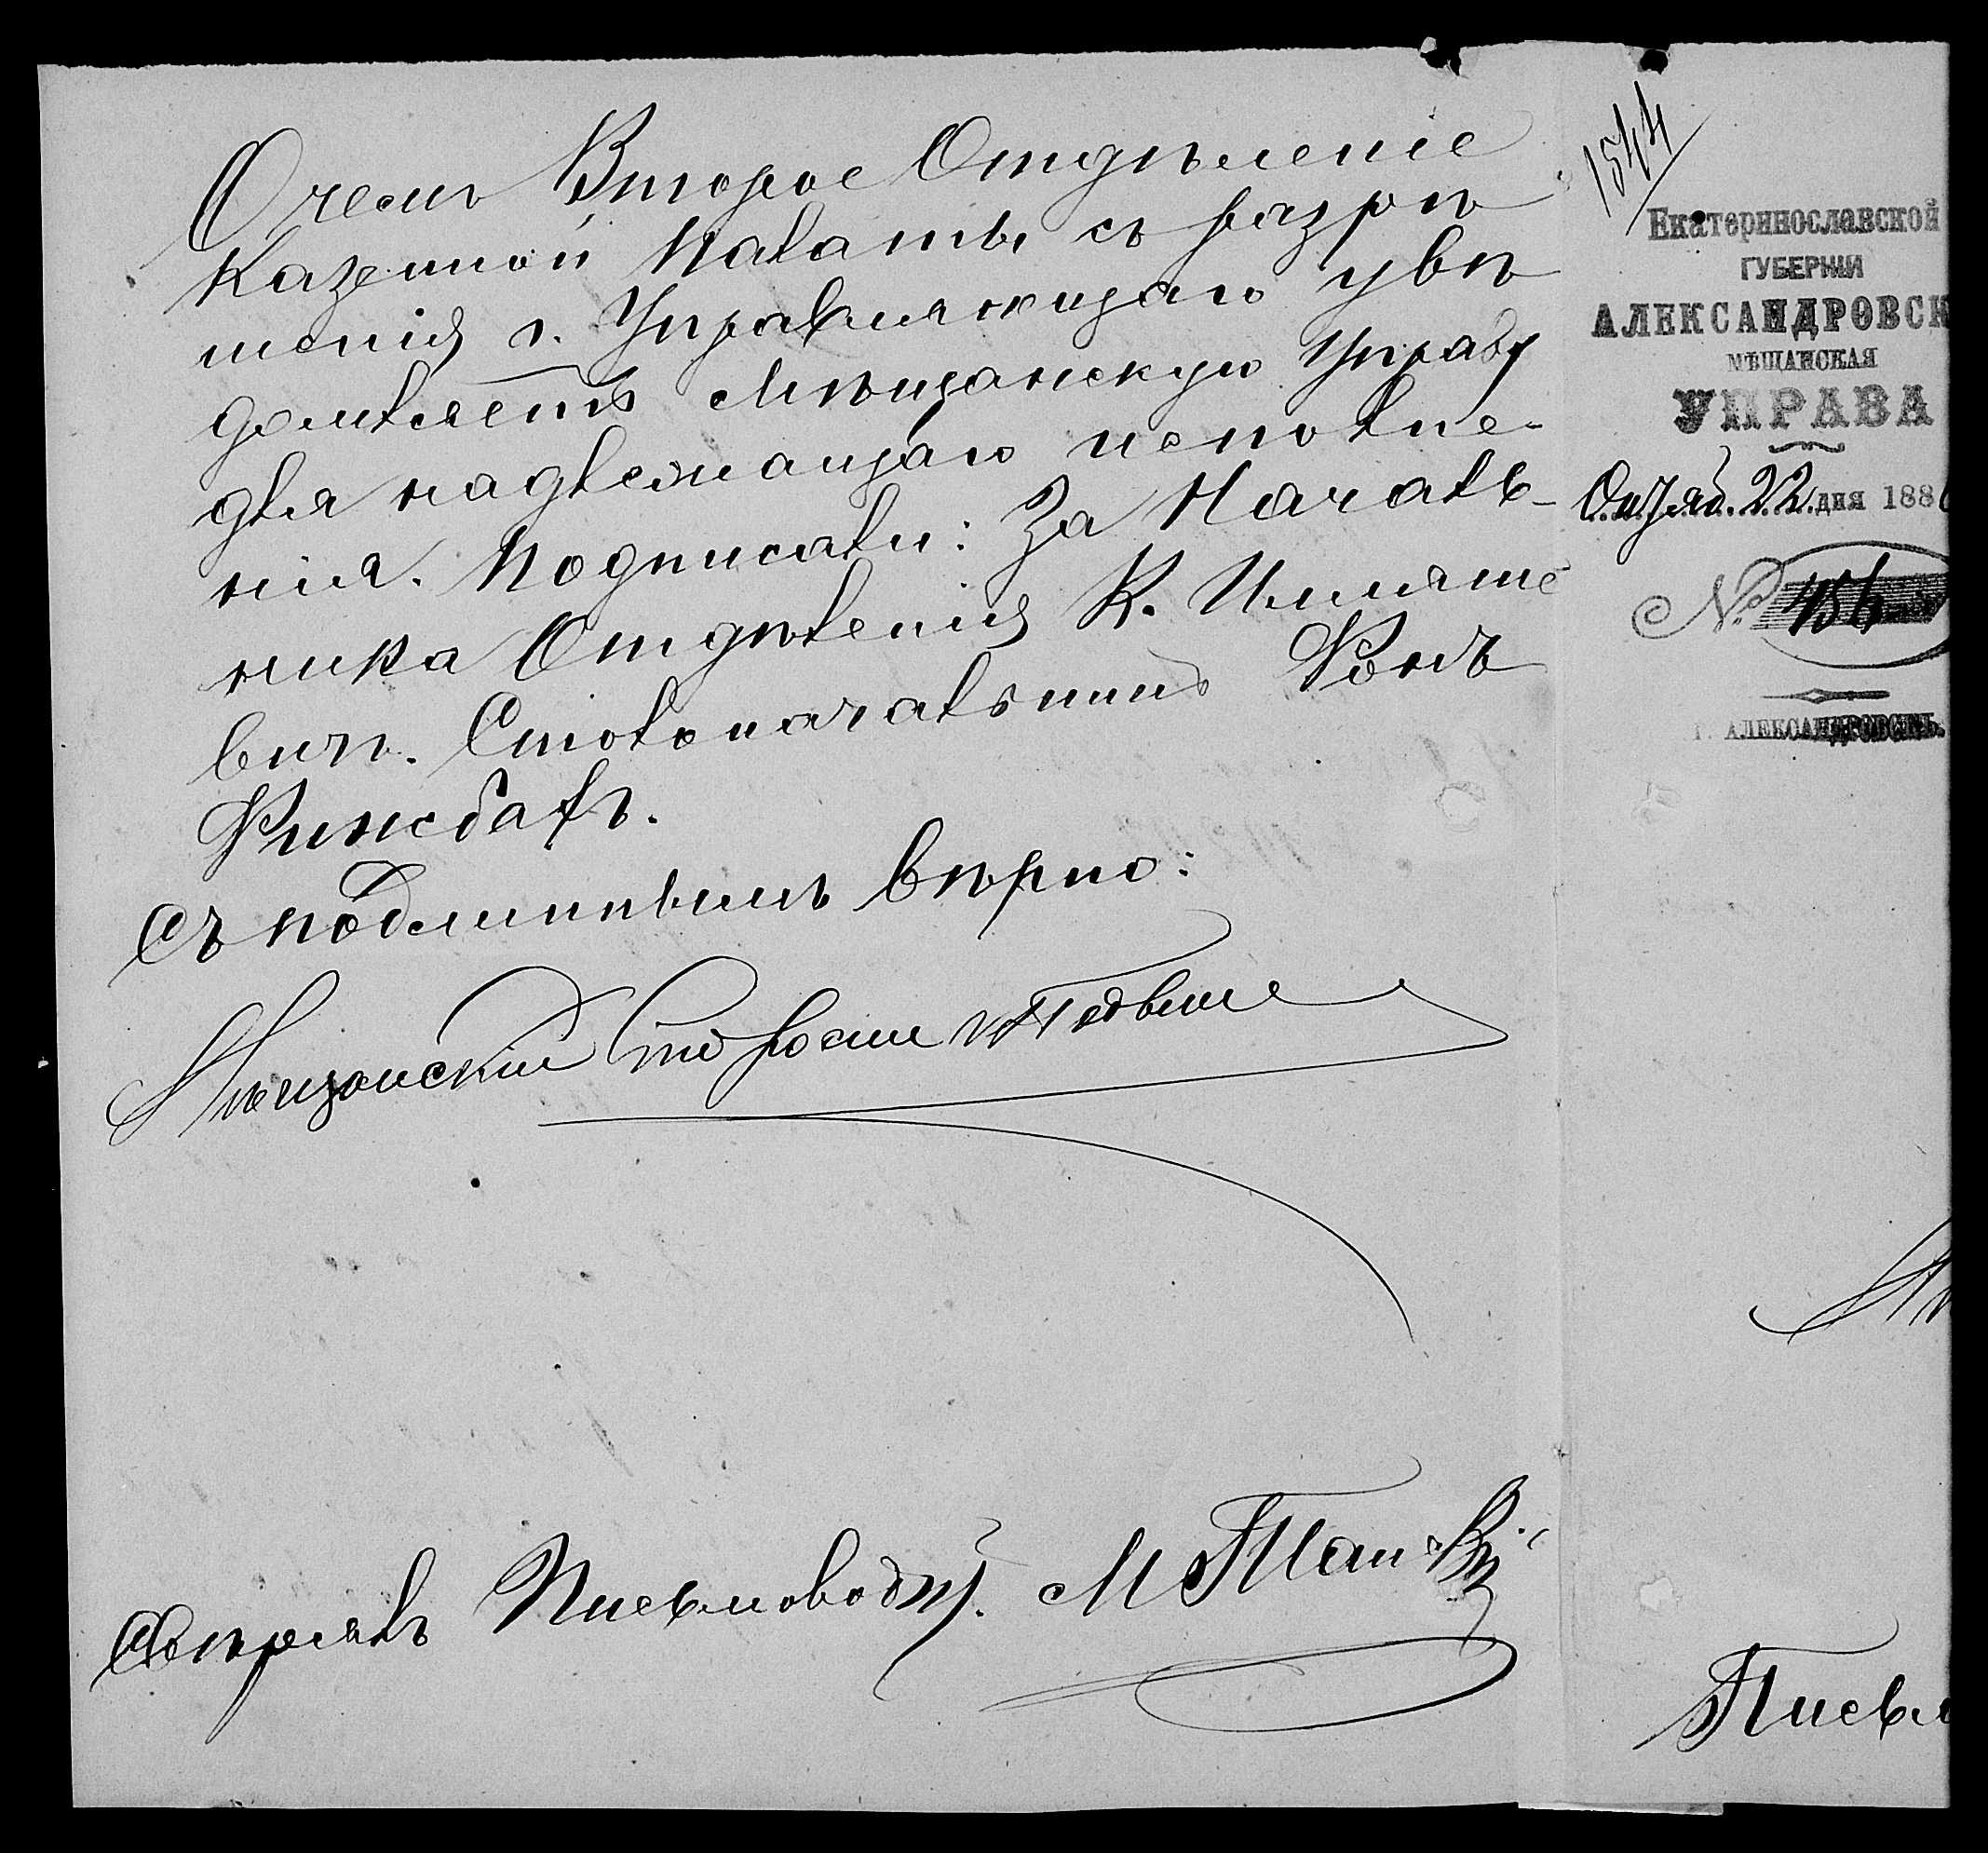 О чемъ Второе Отдѣленіе
Казенной Палаты съ разрѣ
шенія г. Управляющаго увѣ
домляетъ Мѣщанскую Управу
для надлежащаго исполне-
нія. Подписали: За Началь-
ника Отдѣленія К.
вичъ. Столоначальникъ Фонъ
Съ подлиннымъ вѣрно:
Мѣщанскій Староста
Свѣрялъ Письмовод.
1544
Екатеринославской
ГУБЕРНІИ
АЛЕКСАНДРОВСК
МѢЩАНСКАЯ
УПРАВА
Октяб. 22 дня 188
№
Г. АЛЕКСАНДРОВСКЪ.
Письм